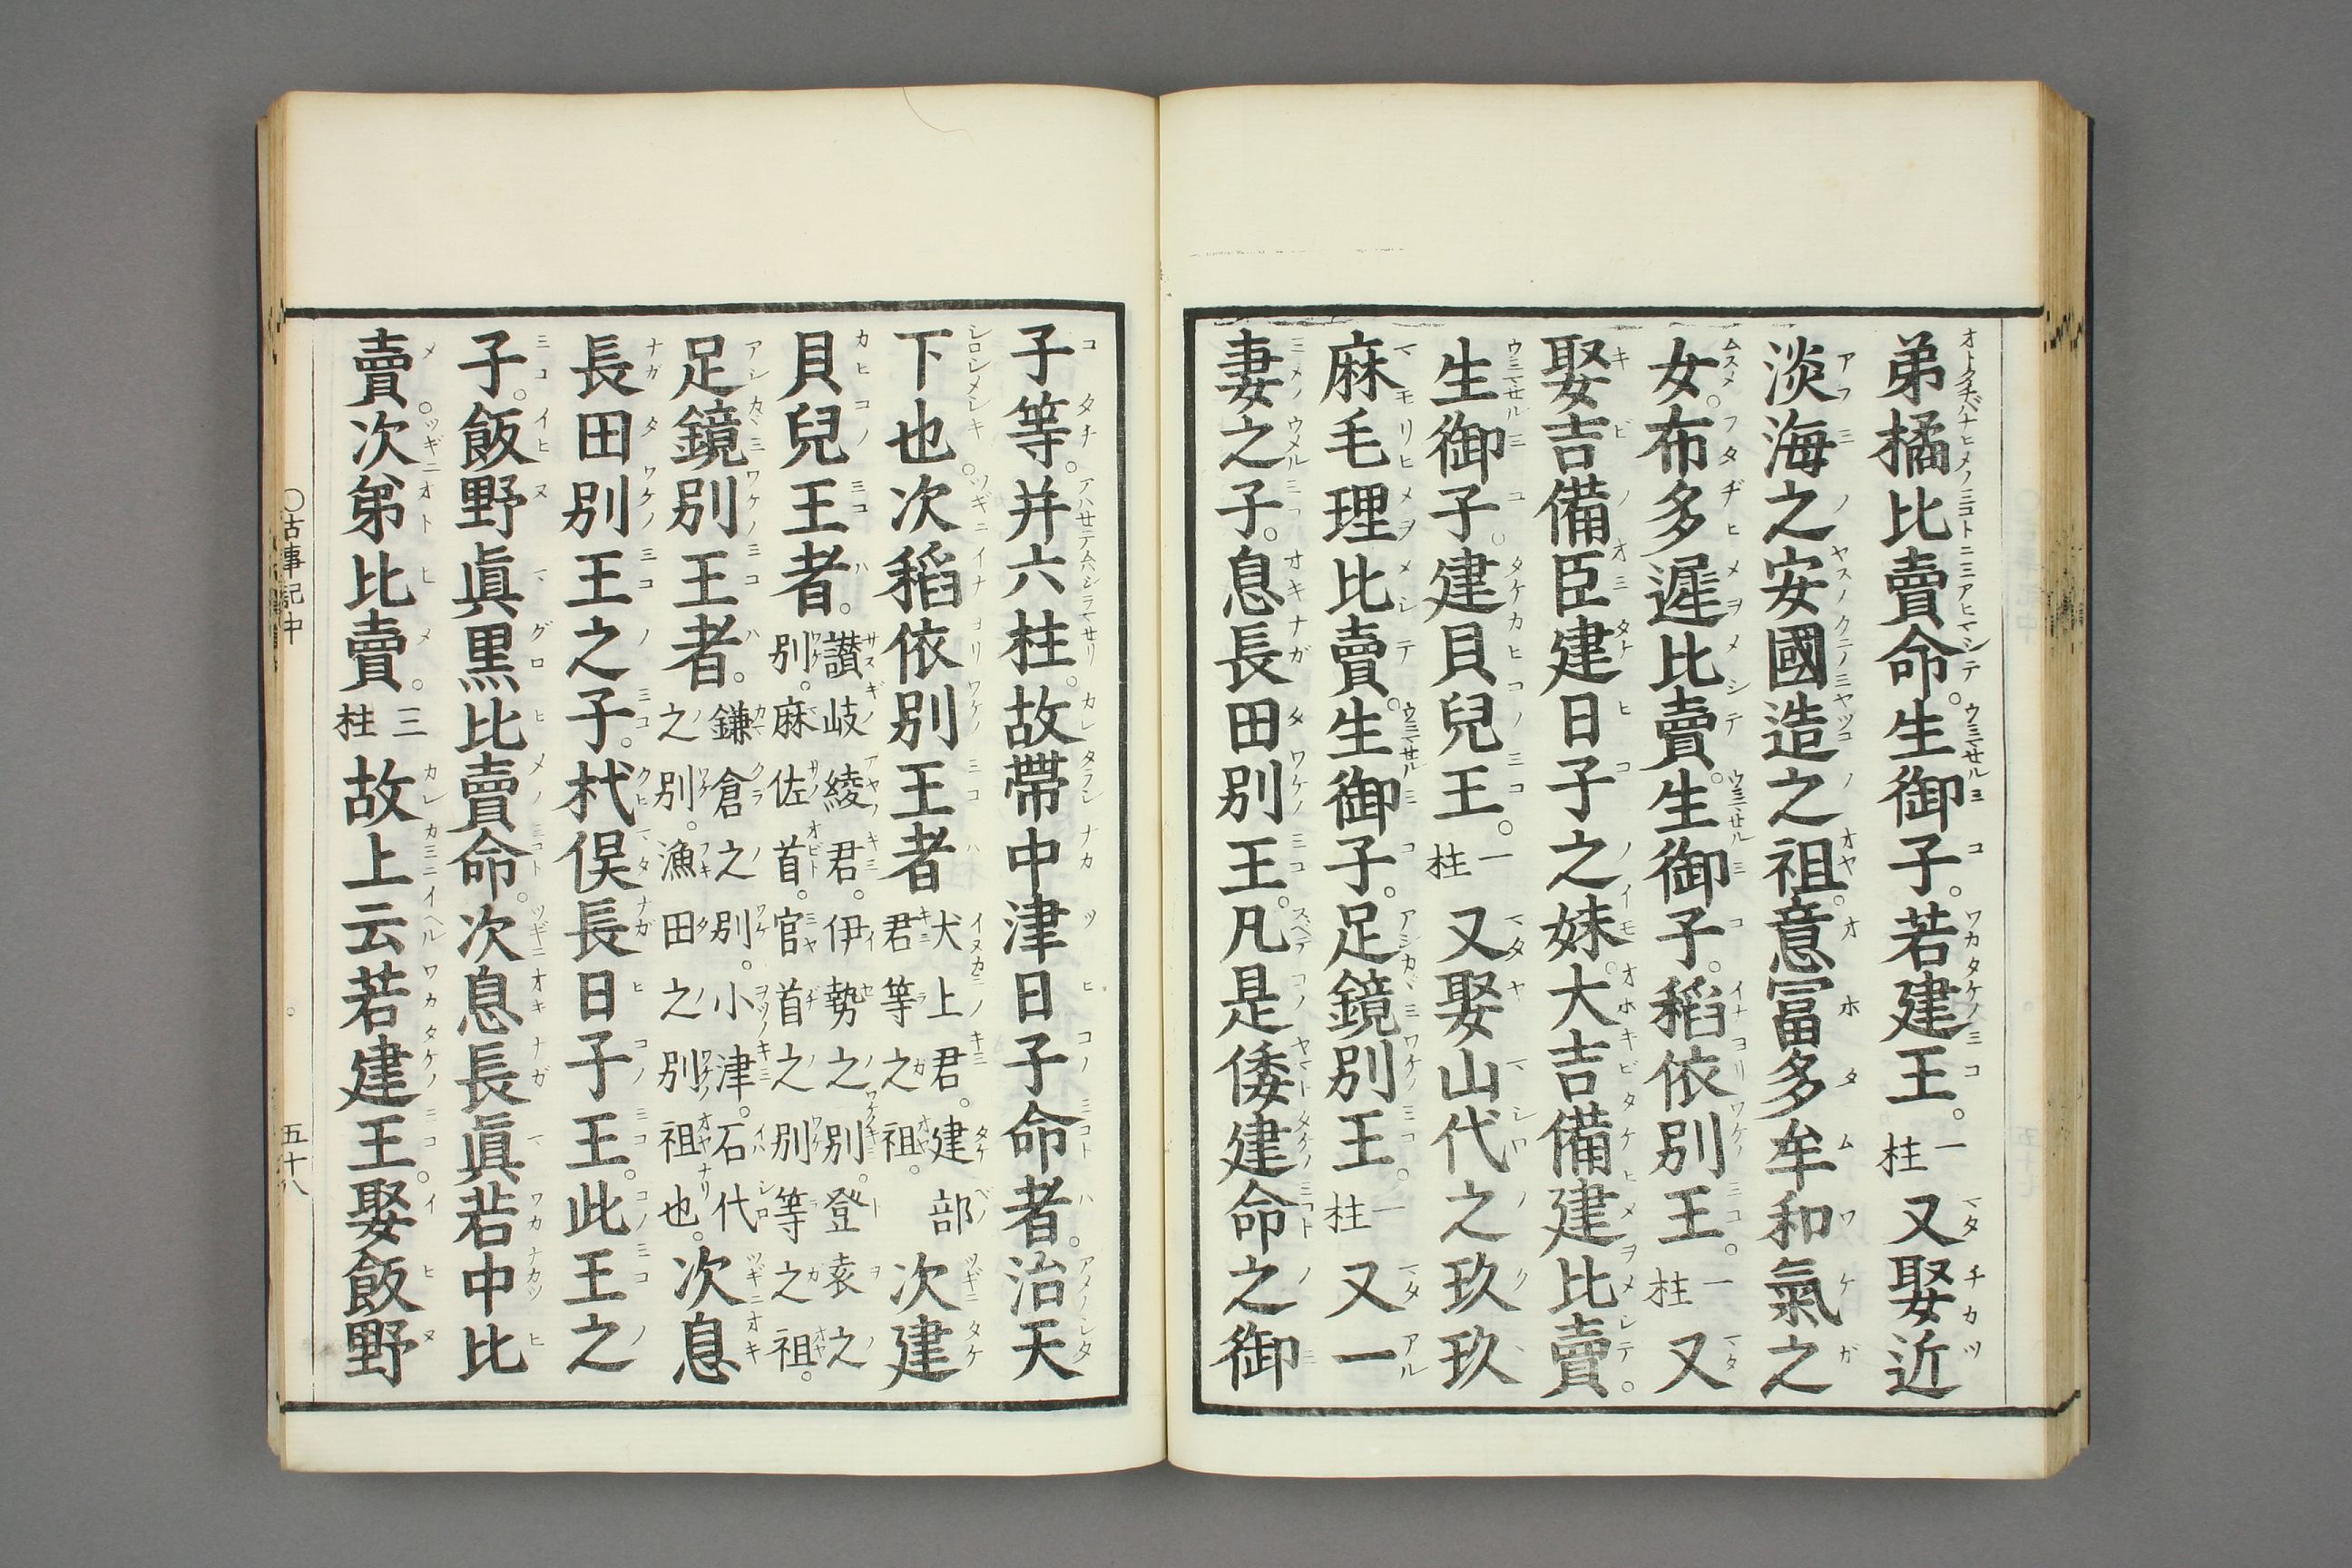 弟橘比賣命。生御子。若建王。一柱又娶近
淡海之安國造之祖。意富多牟和氣之
女。布多遲比賣。生御子。稻依別王。一柱又
娶吉備臣建日子之妹。大吉備建比賣。
生御子。建貝兒王。一柱又娶山代之玖玖
麻毛理比賣。生御子。足鏡別王。一柱又一
妻之子。息長田別王。凡是倭建命之御
子等。并六柱。故帶中津日子命者。治天
下也。次稻依別王者犬上君。建部君等之祖。次建
貝兒王者。讃岐綾君。伊勢之別。登袁之別。麻佐首。宮首之別等之祖。
足鏡別王者。鎌倉之別。小津。石代之別。漁田之別祖也。次息
長田別王之子。杙俣長日子王。此王之
子。飯野眞黒比賣命。次息長眞若中比
賣。次弟比賣。三柱故上云若建王。娶飯野
〇古事記中
五十八